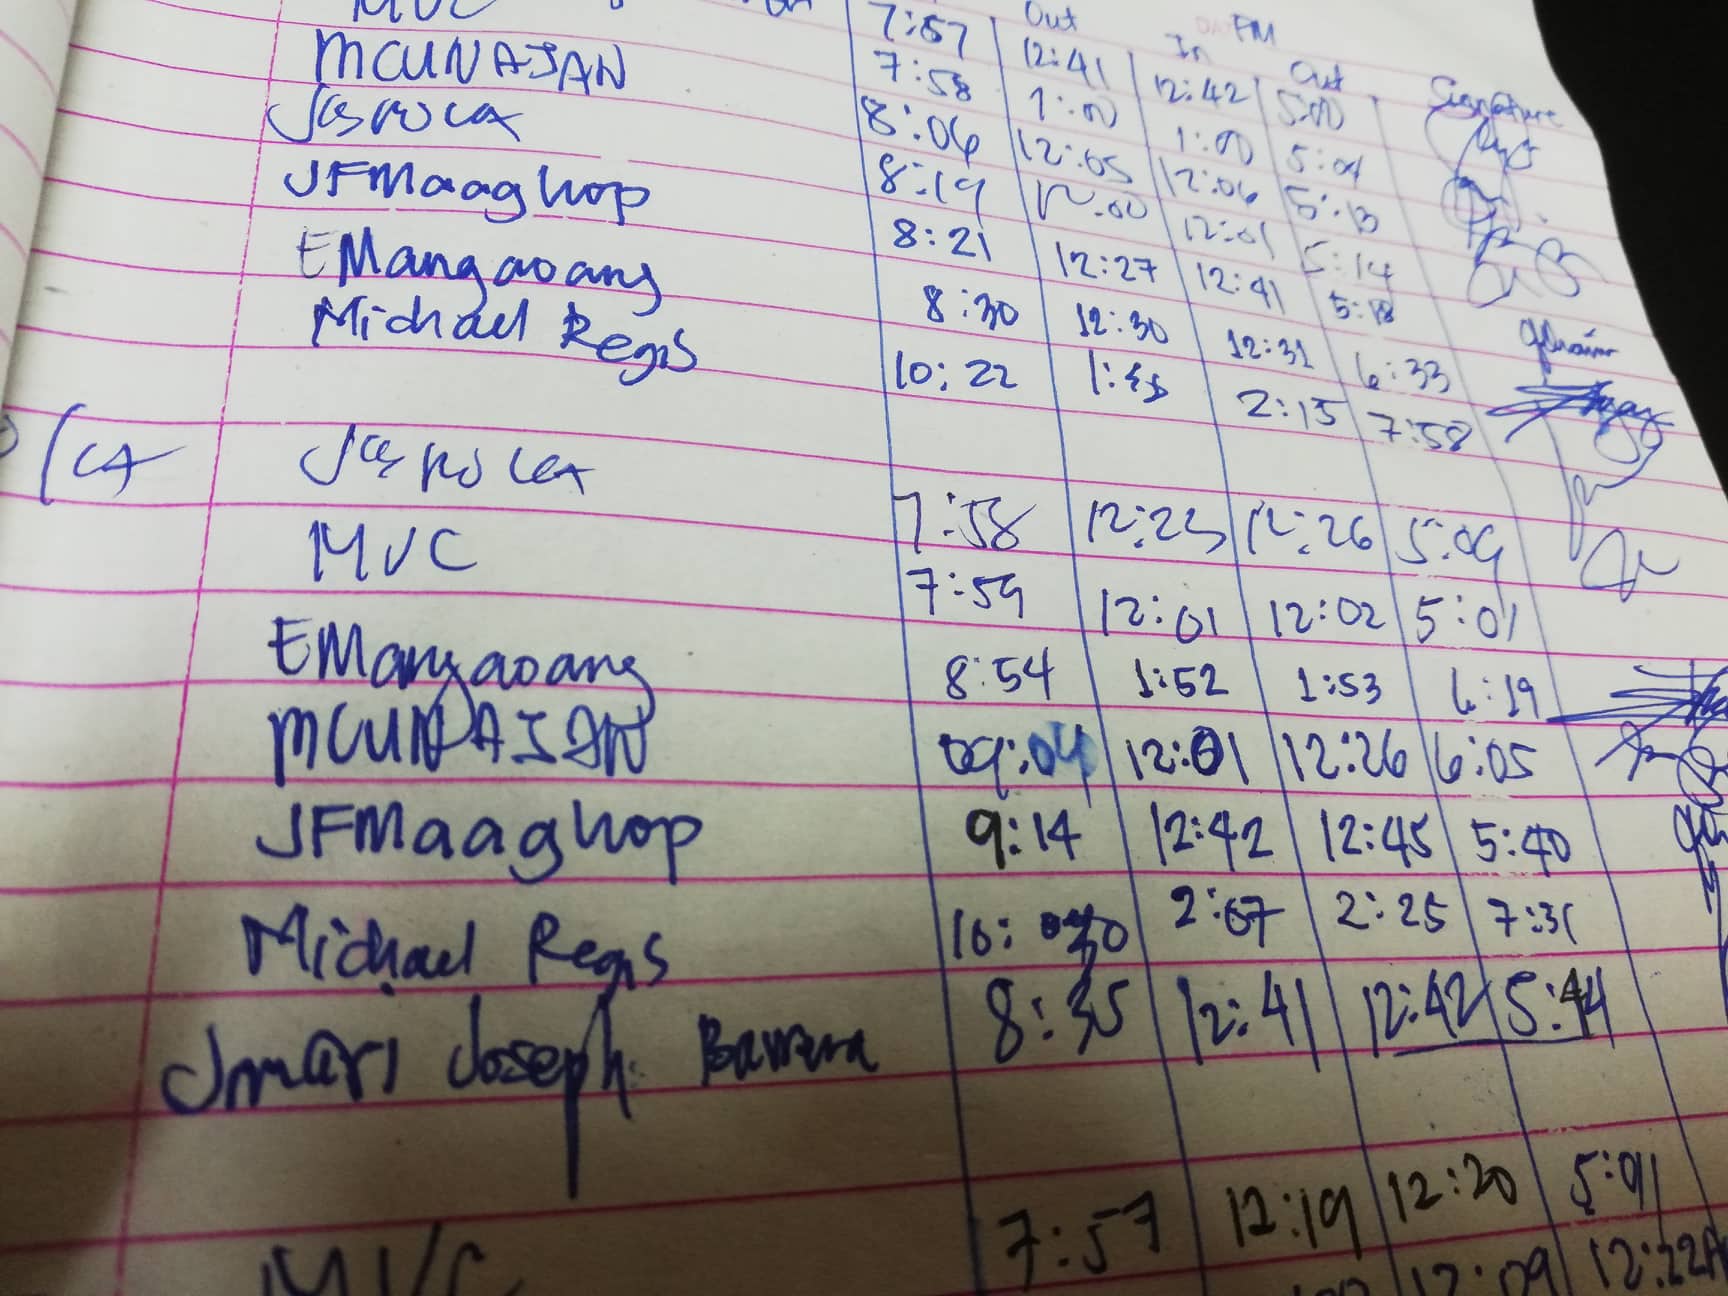 Out PM
In Out Signature
MVC 7:57 12:41 12:42 5:00
MCUNAJAN 7:58 1:00 1:00 5:04
8:06 12:05 12:06 5:13
JFMaaghop 8:19 12:00 12:01 5:14
EMangaoang 8:21 12:27 12:41 5:18
Michael Regis 8:30 12:30 12:31 6:33
10:22 2:15 7:58
CA 7:58 12:23 12:26 5:09
MVC 7:59 12:01 12:02 5:01
EMangaoang 8:54 1:52 1:53 6:19
MCUNAJAN 09:04 12:01 12:26 6:05
JFMaaghop 9:14 12:42 12:45 5:40
Michael Regis 2:07 2:25 7:31
Jmari Joseph 8:35 12:41 12:42 5:44
MVC 7:57 12:19 12:20 5:01
12:09 12:22